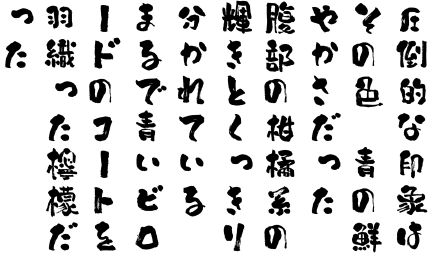 圧倒的な印象は
その色　青の鮮
やかさだった
腹部の柑橘系の
輝きとくっきり
分かれている
まるで青いビロ
ードのコートを
羽織った檸檬だ
った